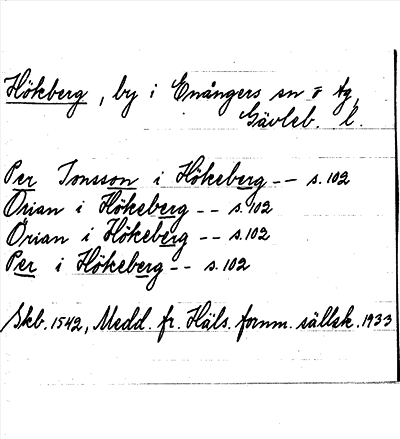 Hökeberg, by i Enångers sn o tg,
Gävleb. l.
Per Jonsson i Hökeberg -- s. 102
Örian i Hökeberg -- s. 102
Örian i Hökeberg -- s. 102
Per i Hökeberg -- s. 102
Skb. 1542, Medd. fr. Häls. fornm. sällsk. 1933